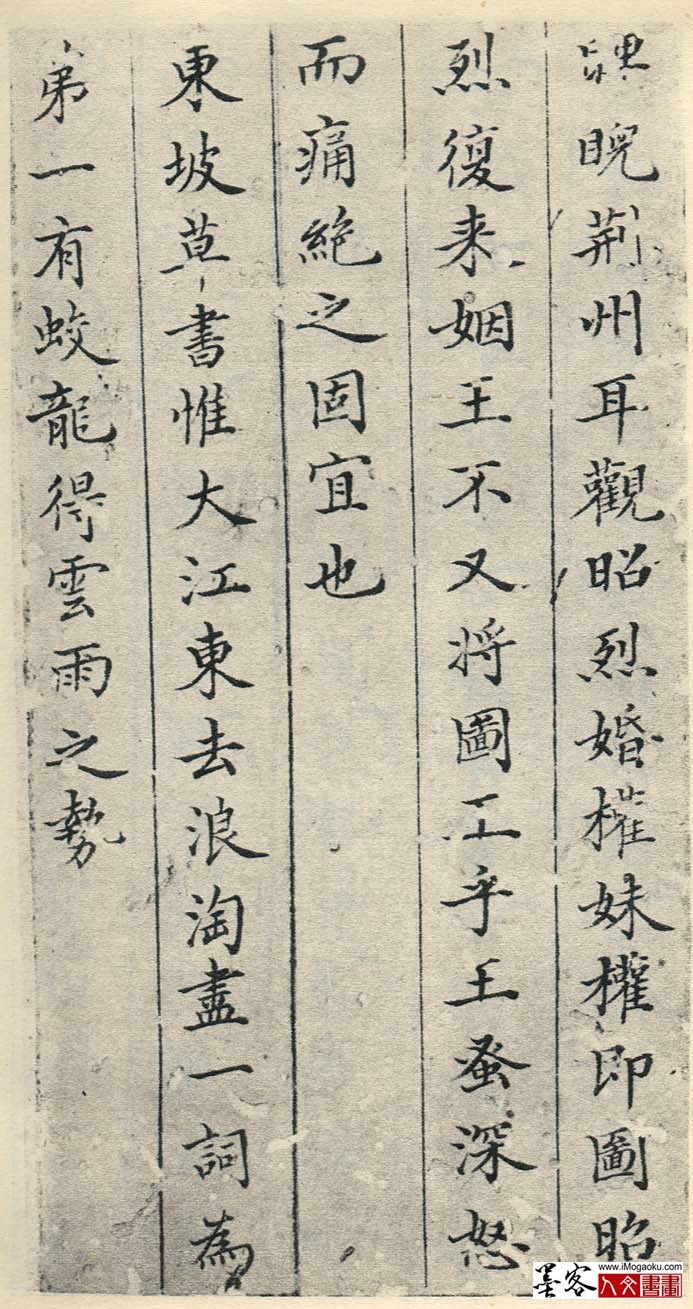 睨荊州耳觀昭烈婚權妹權即圖昭
烈復来姻王不又将圖工乎王蚤深怒
而痛絶之固宜也
東坡草書惟大江東去浪淘盡一詞為
弟一有蛟龍得雲雨之勢
www.iMogaoku.com
墨客人文書畫